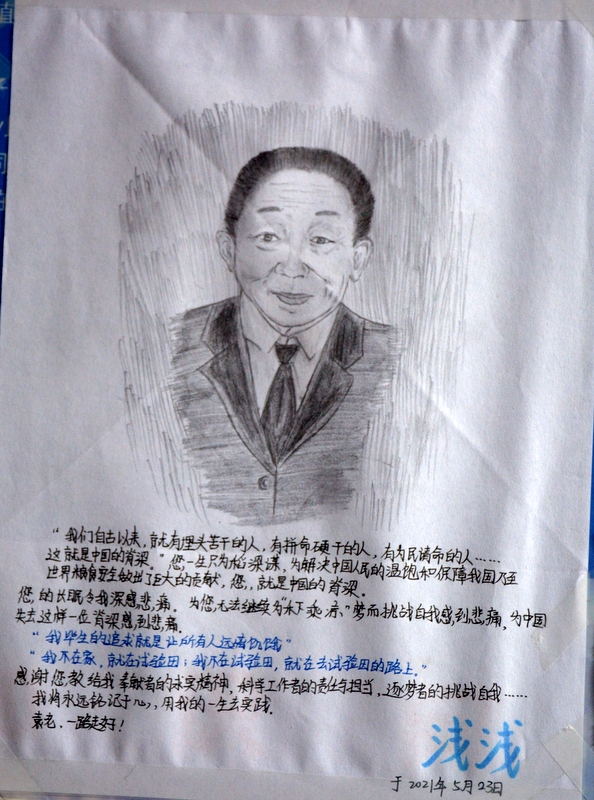 “我们自古以来，就有埋头苦干的人，有拼命硬干的人，有为民请命的人……
这就是中国的脊梁。”您一生只为稻粱谋，为解决中国人民的温饱和保障我国乃至
世界粮食安全做出了巨大的贡献，您，就是中国的脊梁。
您，的长眠令我深感悲痛。为您无法继续为“禾下乘凉”梦而挑战自我感到悲痛，为中国
失去这样一位脊梁感到悲痛。
“我毕生的追求就是让所有人远离饥饿”
“我不在家，就在试验田；我不在试验田，就在去试验田的路上。”
感谢您教给我奉献者的求实精神，科学工作者的责任与担当，逐梦者的挑战自我……
我将永远铭记于心，用我的一生去实践。
袁老，一路走好！
浅浅
于2021年5月23日